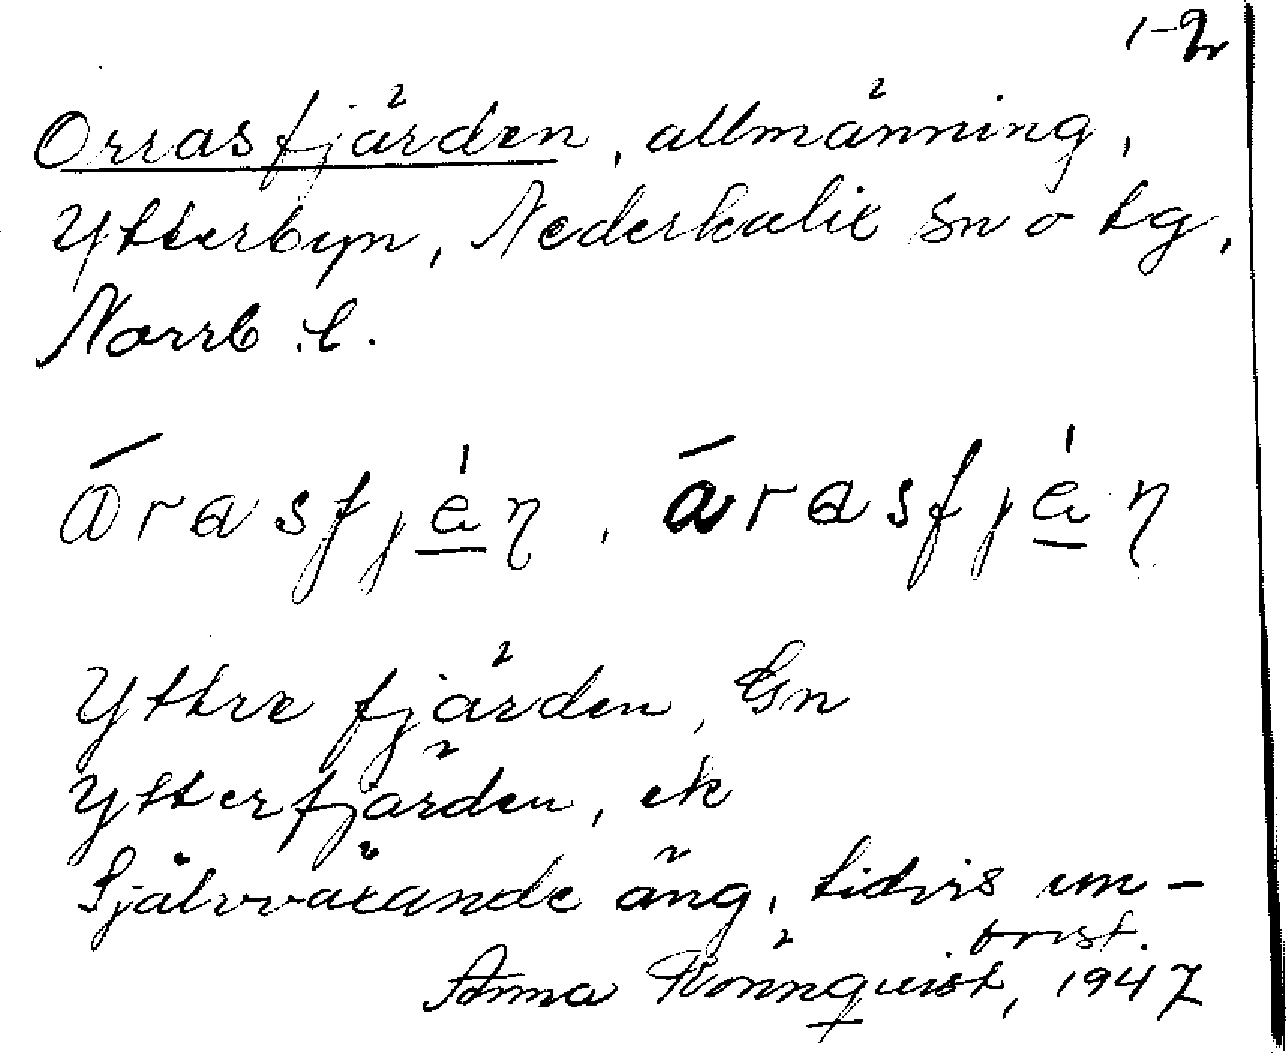 1-2
Orrasfjärden, allmänning,
Ytterbyn, Nederkalix sn o tg,
Norrb. l.
árasfjèn, árasfjèn
Yttre fjärden, Gn
Ytterfjärden, ek
Självvärande äng, tidvis un-
brist.
Anna Rönnquist, 1947